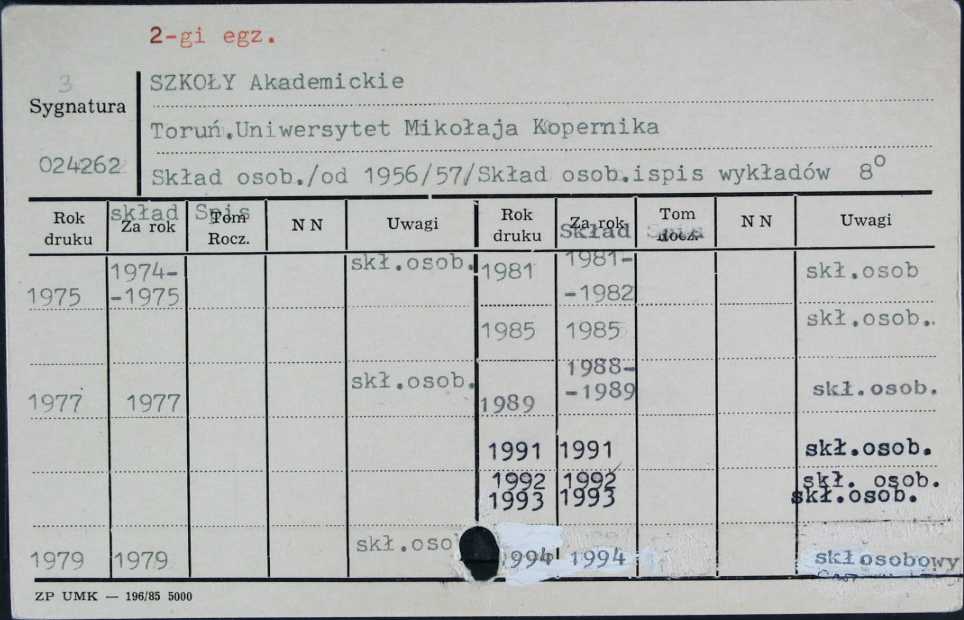 2-gi egz.
3
SZKOŁY Akademickie
Sygnatura
Toruń.Uniwersytet Mikołaja Kopernika
024262
Skład osob./od 1956/57/Skład osob.ispis wykładów 8°
skład Spis
Rok druku Za rok Tom Rocz. N N Uwagi Rok druku Za rok Tom Rocz. N N Uwagi
Skład Spis
1975 1974-
-1975 skł.osob. 1981 1981-
-1982 skł.osob
1985 1985 skł.osob.
1977 1977 skł.osob. 1989 1988-
-1989 skł.osob.
1991 1991 skł.osob.
1992 1992 skł. osob.
1993 1993 skł.osob.
1979 1979 skł.oso 1994 1994 skłosobowy
ZP UMK — 196/85 5000